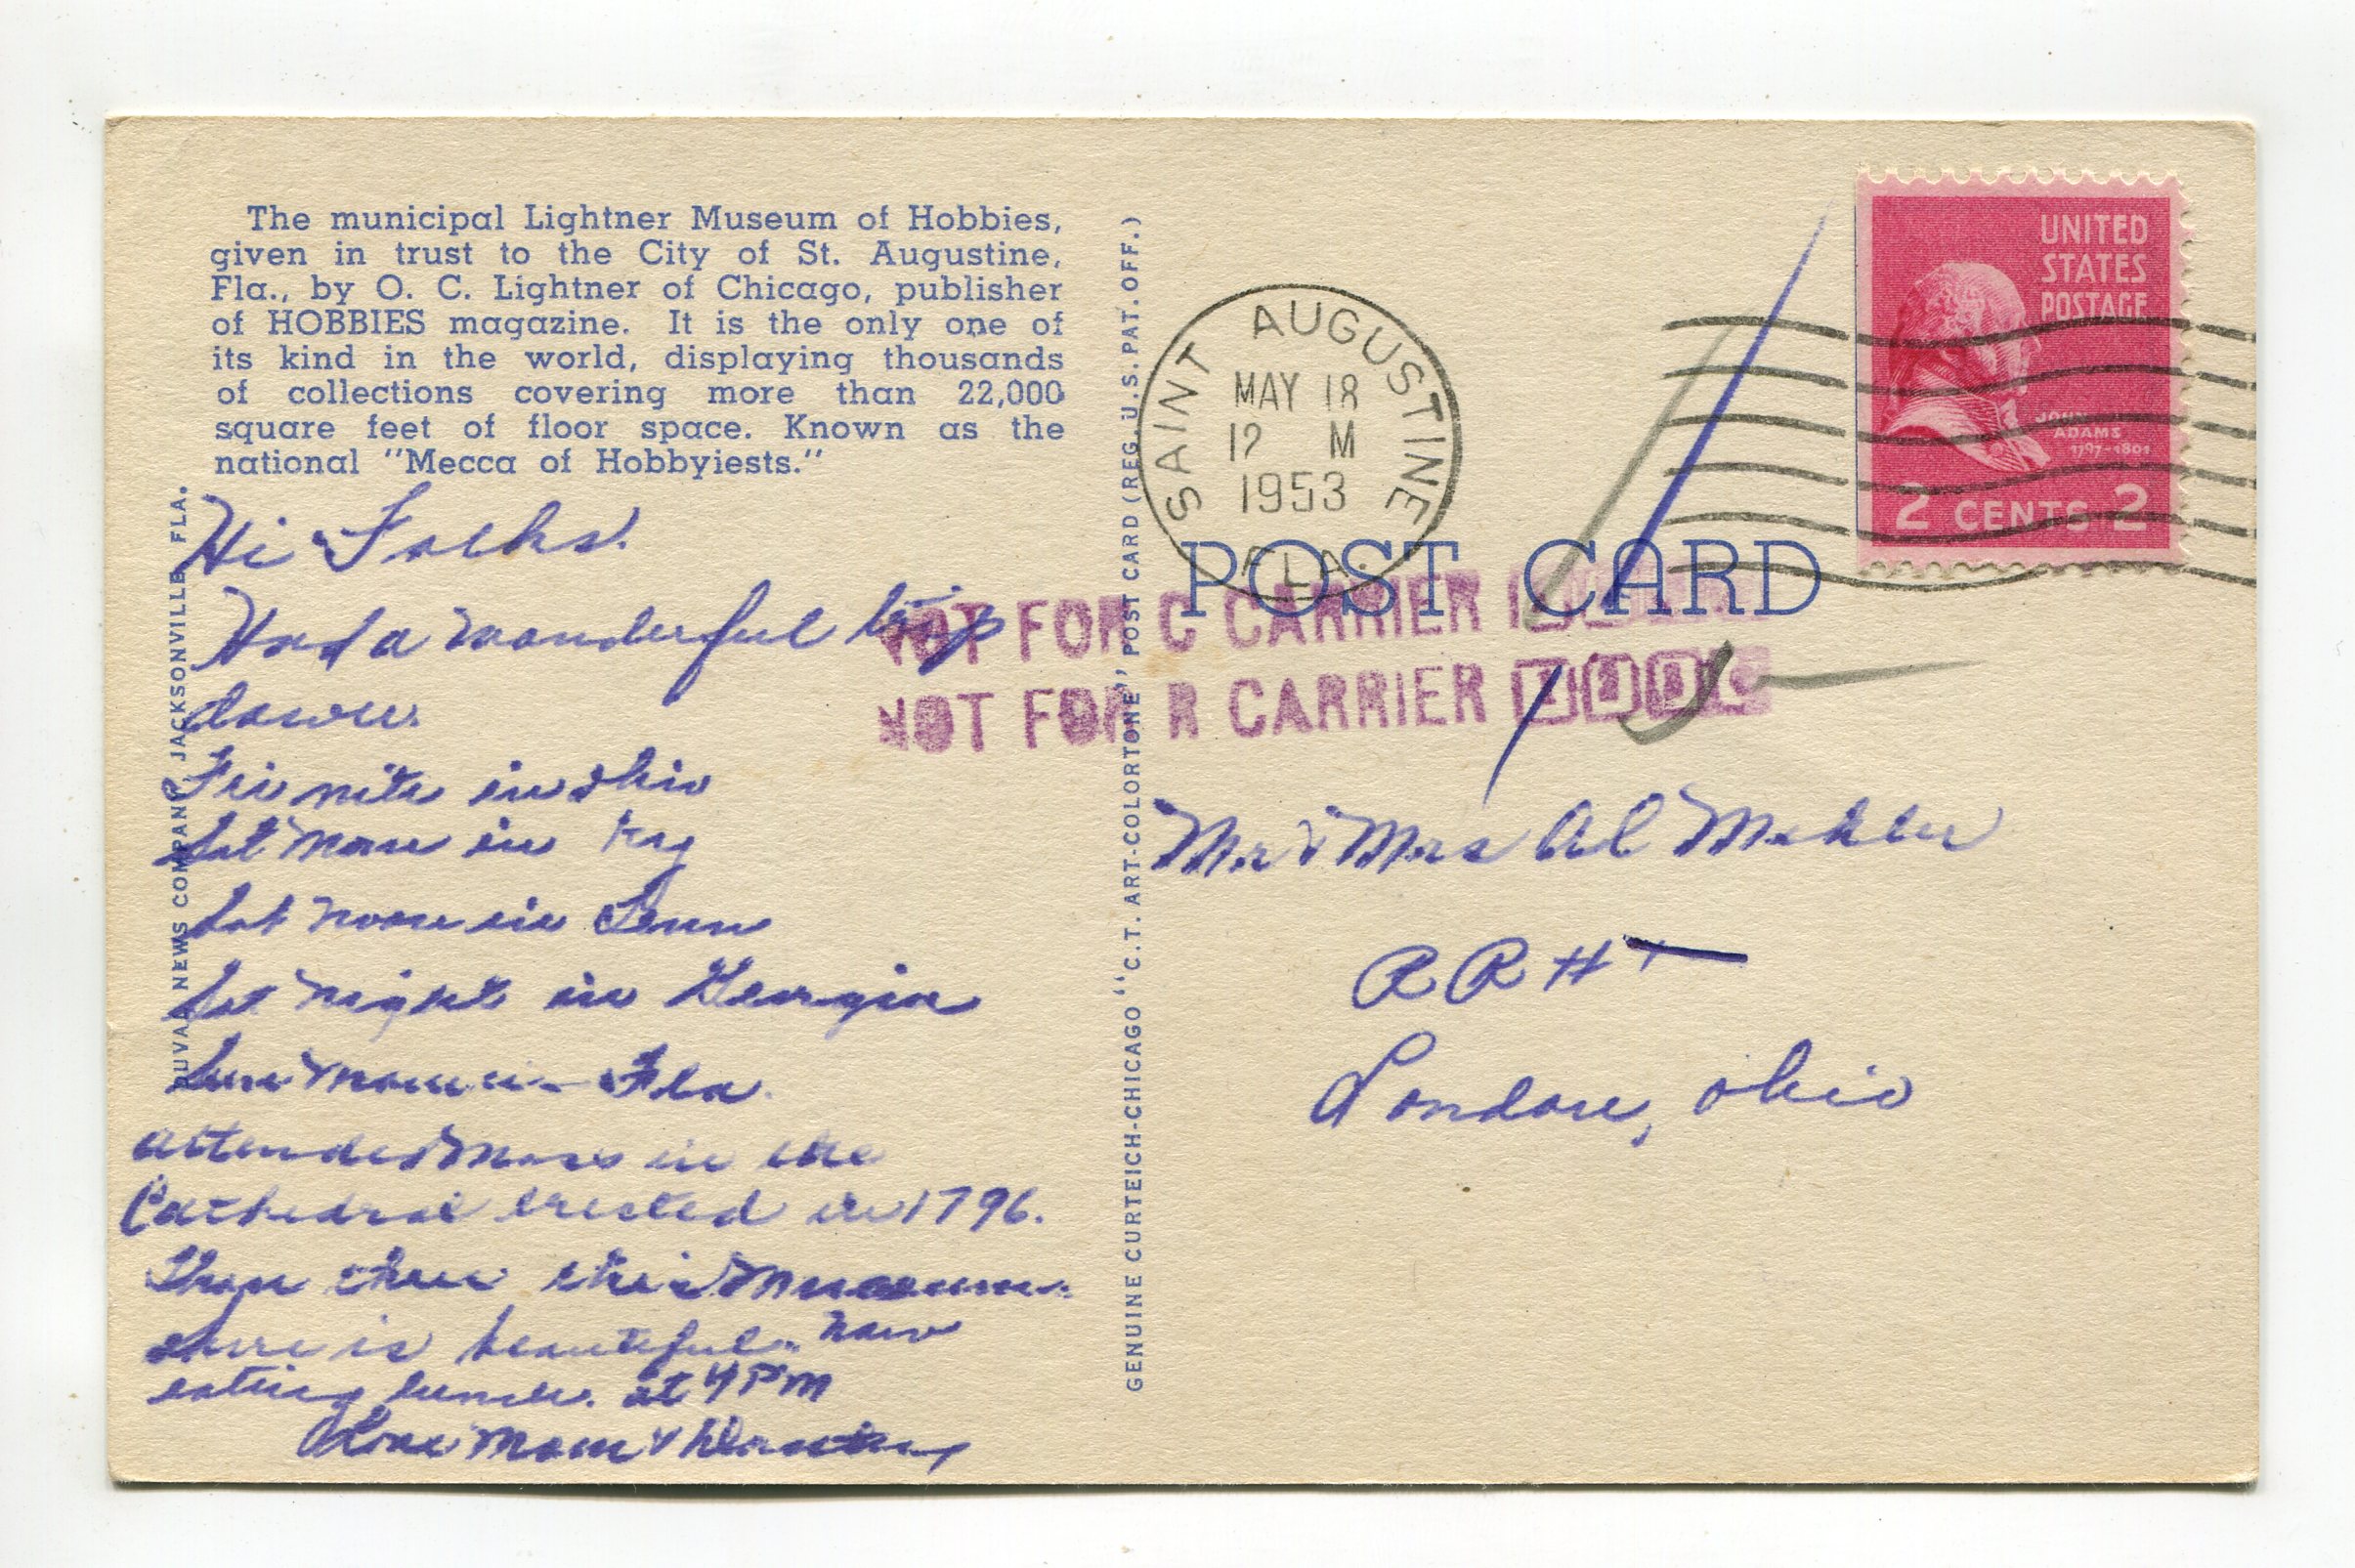 The municipal Lightner Museum of Hobbies,
given in trust to the City of St. Augustine,
Fla., by O. C. Lightner of Chicago, publisher
of HOBBIES magazine. It is the only one of
its kind in the world, displaying thousands
of collections covering more than 22,000
square feet of floor space. Known as the
national "Mecca of Hobbyiests."
Hi Folks.
Had a wonderful trip
down.
Fri nite in Ohio
Sat morn in Ky
Sat noon in Tenn
Sat night in Georgia
Sun morn in Fla.
attended Mass in the
Cathedral erected in 1796.
Then thru this Museum.
there is beautiful. now
eating lunch. at 4 PM
Love Mom &
DUVAL NEWS COMPANY, JACKSONVILLE, FLA.
GENUINE CURTEICH-CHICAGO "C.T. ART-COLORTONE" POST CARD (REG. U.S. PAT. OFF.)
SAINT AUGUSTINE
MAY 18
12 M
1953
FLA.
POST CARD
UNITED
STATES
POSTAGE
JOHN ADAMS
1797-1801
2 CENTS 2
NOT FOR C CARRIER
NOT FOR R CARRIER
Mr & Mrs Al
RR #
London, Ohio